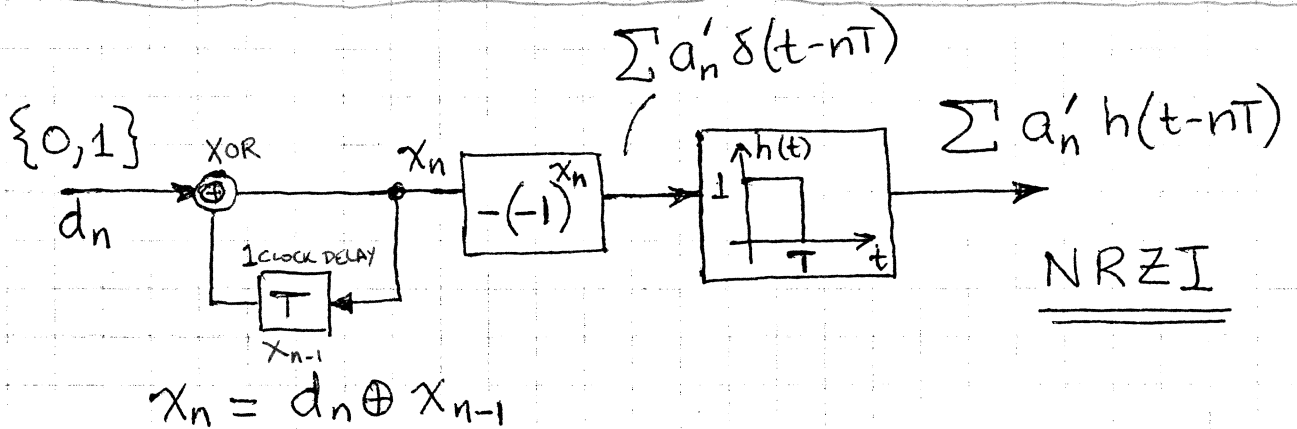 ∑ a'ₙ δ(t-nT)
{0,1}
XOR
xₙ
-(-1)^xₙ
h(t)
1
T
t
∑ a'ₙ h(t-nT)
dₙ
⊕
1 CLOCK DELAY
T
xₙ₋₁
NRZI
xₙ = dₙ ⊕ xₙ₋₁